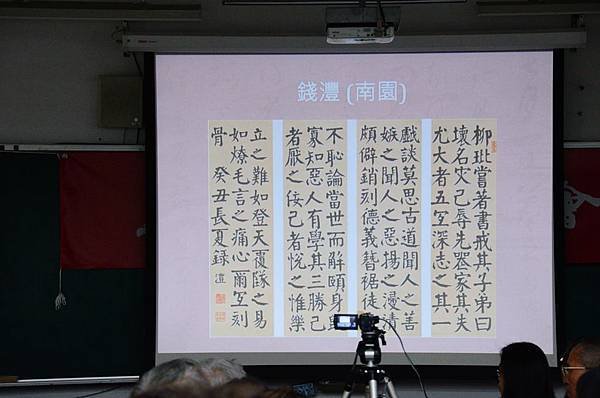 錢灃 (南園)
柳玭嘗著書戒其子弟曰
壞名灾己辱先喪家其失
尤大者五宜深志之其一
戲談莫思古道聞人之善
嫉之聞人之惡揚之浸漬
頗僻銷刻德義簪裾徒
不恥論當世而解頤身
寡知惡人有學其三勝己
者厭之佞己者悅之惟樂
立之難如登天覆隊之易
如燎毛言之痛心爾宜刻
骨 癸丑長夏錄 灃